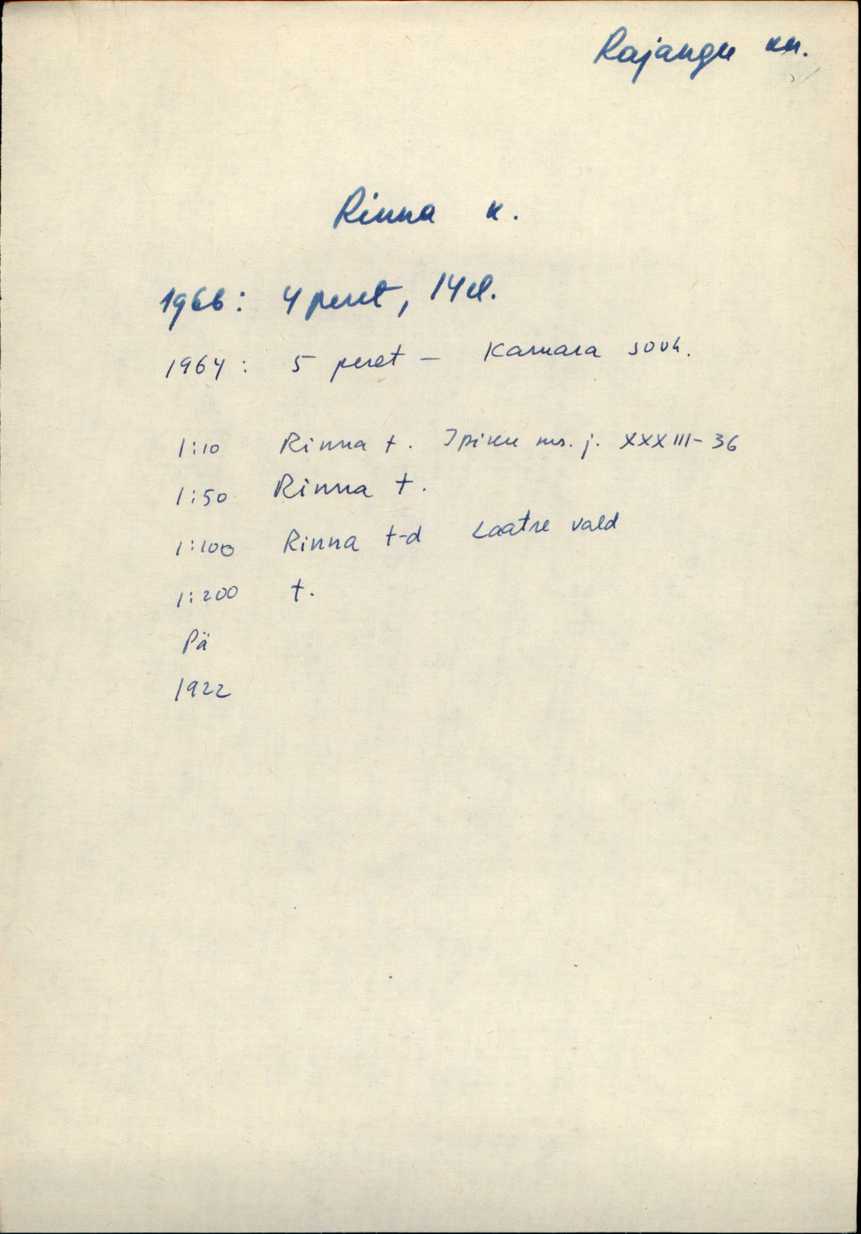 Rajangu kn.
Rinna k.
1966: 4 peret, 14 el.
1964: 5 peret - Kamara sovh.
1:10 Rinna t. Ipiku ms. j. XXXIII-36
1:50 Rinna t.
1:100 Rinna t-d Laatre vald
1:200 t.
Pä
1922